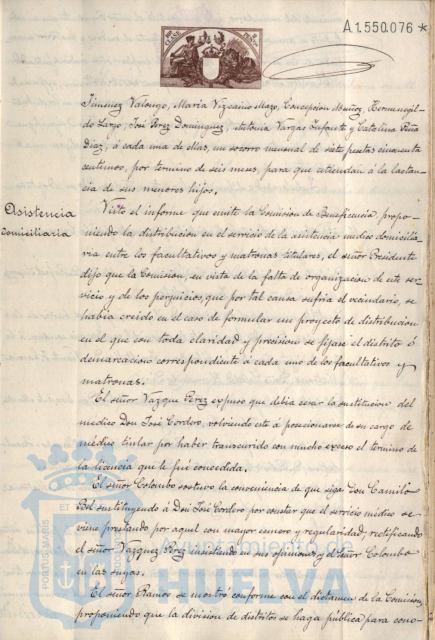 A1.550.076 *
Jimenez Valongo, Maria Vizcaino Mazo, Concepcion Muñoz, Hermenegil-
do Largo, José Perez Dominguez, Antonia Vargas Infante y Catalina Peña
Diaz, á cada una de ellas, un socorro mensual de siete pesetas cincuenta
centimos, por termino de seis meses, para que atiendan á la lactan-
cia de sus menores hijos.
Asistencia
Domiciliaria
Visto el informe que emite la Comision de Beneficencia, propo-
niendo la distribucion en el servicio de la asistencia medico domicilia-
ria entre los facultativos y matronas titulares, el señor Presidente
dijo que la Comision, en vista de la falta de organizacion de este ser-
vicio y de los perjuicios que por tal causa sufria el vecindario, se
habia creido en el caso de formular un proyecto de distribucion
en el que con toda claridad y precision se fijase el distrito ó
demarcacion correspondiente á cada uno de los facultativos y
matronas.
El señor Vazque Perez expuso que debia cesar la sustitucion del
medico Don José Cordero, volviendo este á posesionarse de su cargo de
médico titular por haber transcurrido con mucho exceso el termino de
la licencia que le fué concedida.
El señor Colombo sostuvo la conveniencia de que siga Don Camilo
Bel sustituyendo á Don José Cordero por constar que el servicio médico se
viene prestando por aquel con mayor esmero y regularidad, rectificando
el señor Vazquez Perez insistiendo en sus opiniones y el señor Colombo
en las suyas.
El señor Ramos se mostró conforme con el dictamen de la Comision,
proponiendo que la division de distritos se haga pública para cono-
PORTUS MARIS
ET
Ayuntamiento
HUELVA